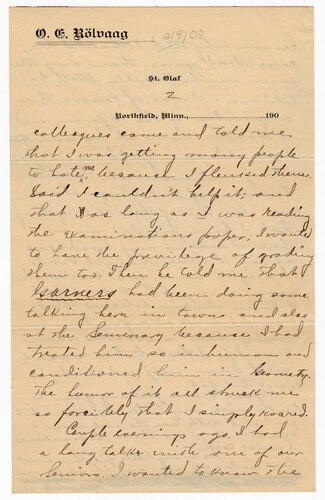 O. E. Rölvaag
2/9/08
St. Olaf
2
Northfield, Minn., 190
colleagues came and told me
that I was getting many people
to hate me because I flunked them.
Said I couldn't help it; and
that as long as I was reading
the examinations paper, I wanted
to have the privilege of grading
them too. Then he told me that
had been doing some
talking here in town and also
at the Seminary because I had
treated him so inhuman and
conditioned him in Geometry.
The humor of it all struck me
so forcibely that I simply roared.
Couple evenings ago I had
a long talk with one of our
Seniors. I wanted to know the